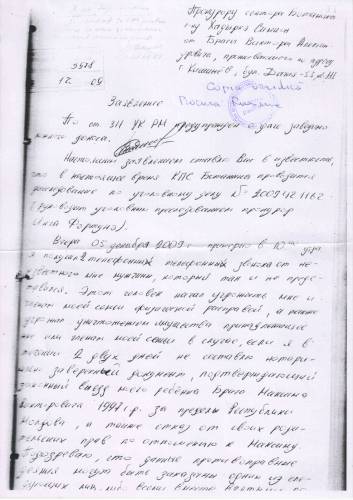 Прокурору сектора Ботаника
г-ну Хадырка Сильвии
от Брага Виктора
проживающего по адресу
г. Кишинёв, бул. Дачия
3571
12 09
Заявление
По ст. 311 УК РМ предупрежден о даче заведомо
ложного доноса.
Настоящим заявлением ставлю Вас в известность,
что в настоящее время КПС Ботаника проводится
расследование по уголовному делу № 2009421162
(руководит уголовным преследованием прокурор
Инга Фортуна).
Вчера 05 декабря 2009 г. примерно в 10 утра
я получил 2 телефонных звонка от не-
известного мне мужчины, который так и не пред-
ставился. Этот человек начал угрожать мне и
членам моей семьи физической расправой, а также
угрожал уничтожением имущества принадлежащее
мне или членам моей семьи в случае, если я в
течении 2 двух дней не составлю нотари-
ально заверенный документ, подтверждающий
законный выезд моего ребёнка Брага Максима
Викторовича 1997 г.р. за пределы Республики
Молдова, а также отказ от своих роди-
тельских прав по отношению к Максиму.
Подозреваю, что данные противоправные
деяния могут быть заказаны одним из